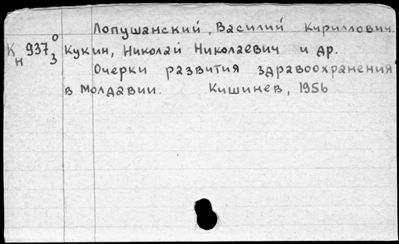 Лопушанский, Василий Кириллович.
К н 937 0 3 Кукин, Николай Николаевич и др.
Очерки развития здравоохранения
в Молдавии. Кишинев, 1956